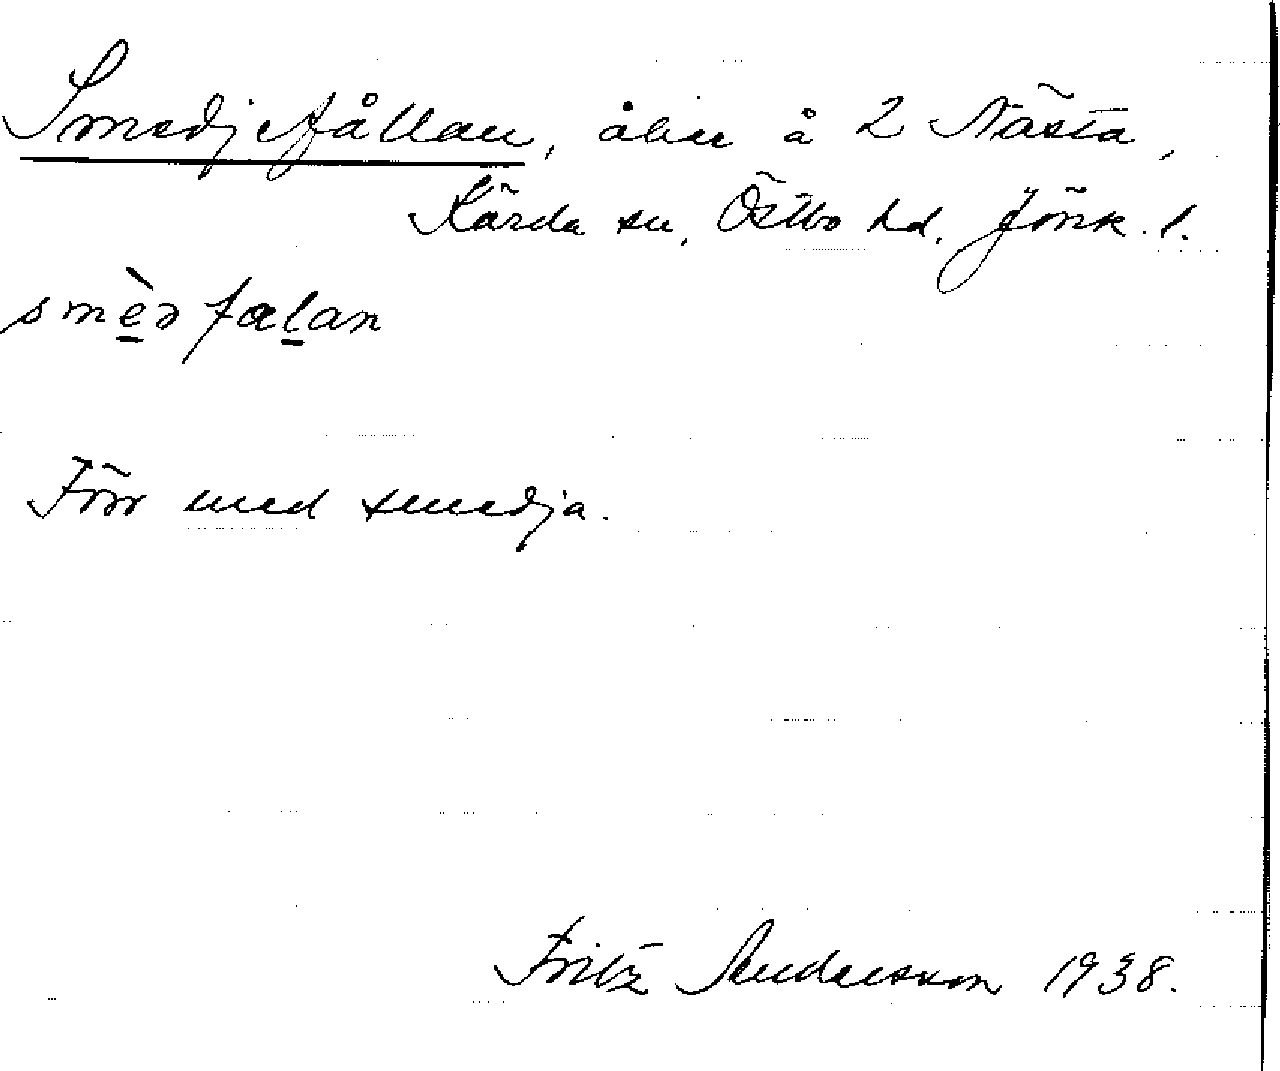 Smedjefållan, åker å 2 Nästa,
Kärda sn, Östbo hd. Jönk. l.
smèdfalan
Förr med smedja.
Fritz Andersson 1938.